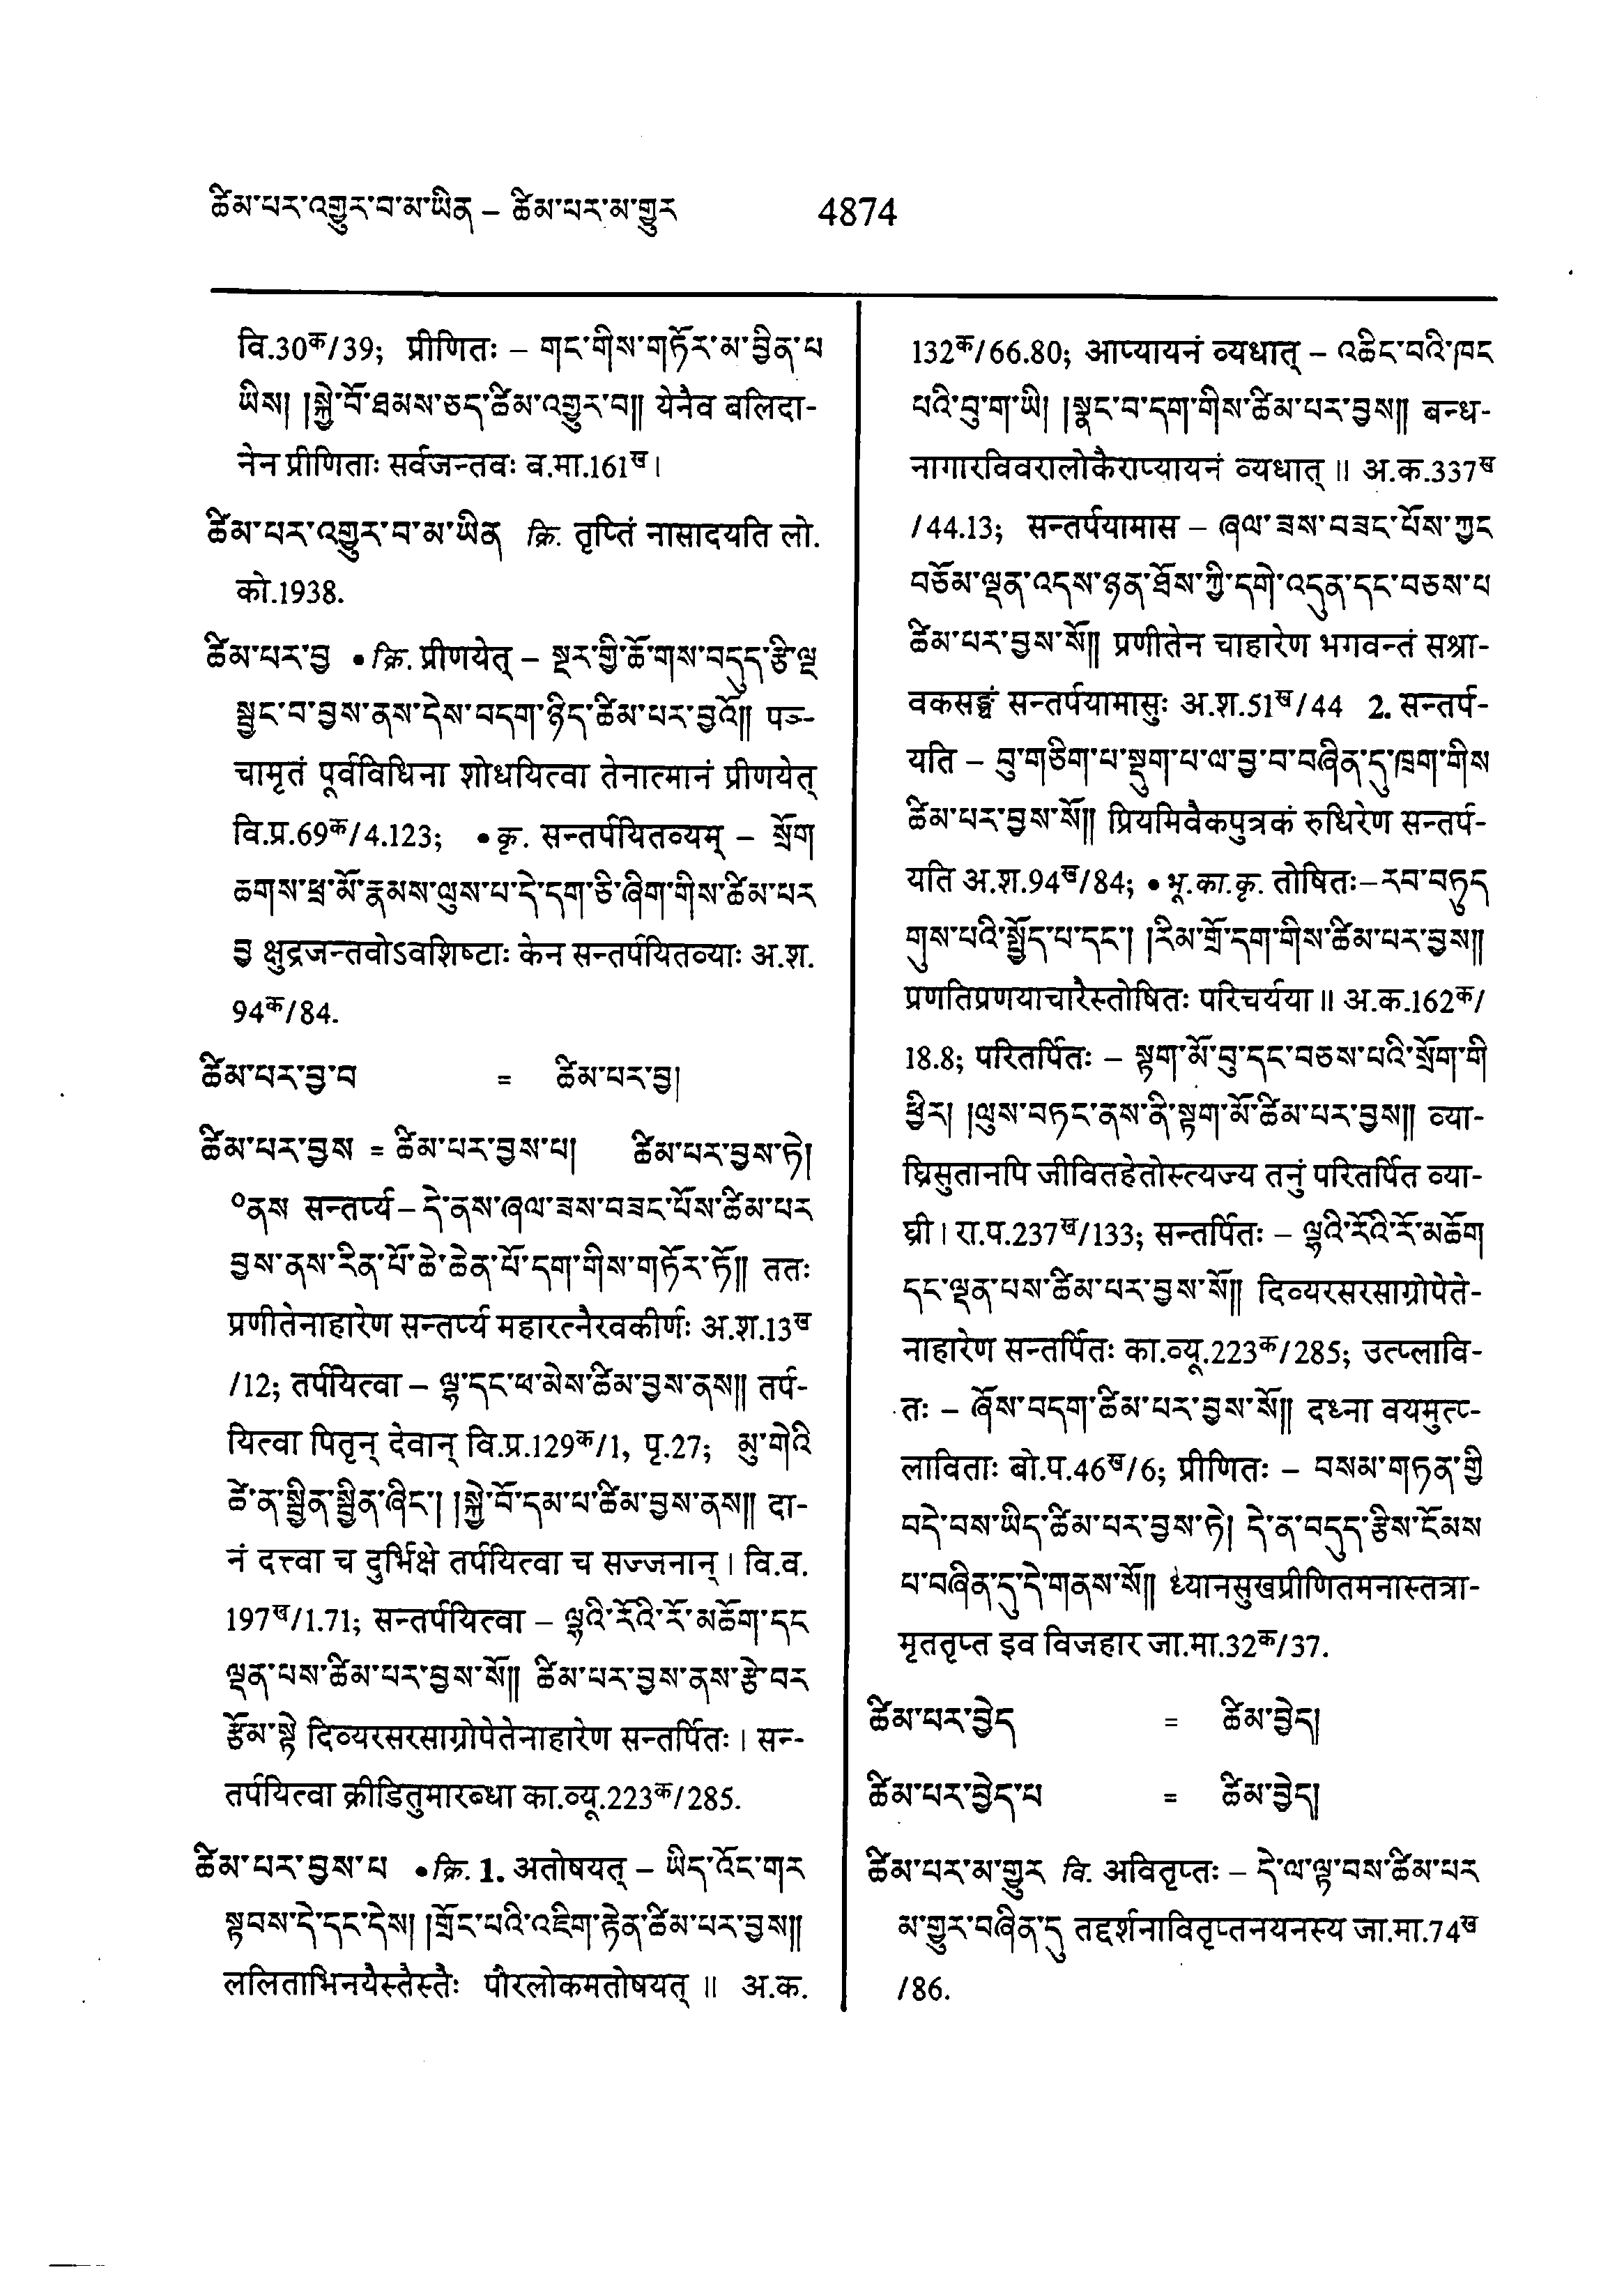 ཚིམ་པར་འགྱུར་བ་མ་ཡིན – ཚིམ་པར་མ་གྱུར
4874
वि.30क/39; प्रीणितः – གང་གིས་གཏོར་མ་བྱིན་པ
ཡིས། །སྐྱེ་བོ་ཐམས་ཅད་ཚིམ་འགྱུར་བ།། येनैव बलिदा-
नेन प्रीणिताः सर्वजन्तवः ब.मा.161ख।
ཚིམ་པར་འགྱུར་བ་མ་ཡིན क्रि. तृप्तिं नासादयति लो.
को.1938.
ཚིམ་པར་བྱ • क्रि. प्रीणयेत् – སྔར་གྱི་ཆོ་གས་བདུད་རྩི་ལྔ
སྦྱང་བ་བྱས་ནས་དེས་བདག་ཉིད་ཚིམ་པར་བྱའོ།། पञ्-
चामृतं पूर्वविधिना शोधयित्वा तेनात्मानं प्रीणयेत्
वि.प्र.69क/4.123; • कृ. सन्तर्पयितव्यम् – སྲོག
ཆགས་ཕྲ་མོ་རྣམས་ལུས་པ་དེ་དག་ཅི་ཞིག་གིས་ཚིམ་པར
བྱ क्षुद्रजन्तवोऽवशिष्टाः केन सन्तर्पयितव्याः अ.श.
94क/84.
ཚིམ་པར་བྱ་བ = ཚིམ་པར་བྱ།
ཚིམ་པར་བྱས = ཚིམ་པར་བྱས་པ། ཚིམ་པར་བྱས་ཏེ།
°ནས सन्तर्प्य – དེ་ནས་ཞལ་ཟས་བཟང་པོས་ཚིམ་པར
བྱས་ནས་རིན་པོ་ཆེ་ཆེན་པོ་དག་གིས་གཏོར་ཏོ།། ततः
प्रणीतेनाहारेण सन्तर्प्य महारत्नैरवकीर्णः अ.श.13ख
/12; तर्पयित्वा – ལྷ་དང་ཕ་མེས་ཚིམ་བྱས་ནས།། तर्प-
यित्वा पितृन् देवान् वि.प्र.129क/1, पृ.27; མུ་གེའི
ཚེ་ན་སྦྱིན་སྦྱིན་ཞིང་། །སྐྱེ་བོ་དམ་པ་ཚིམ་བྱས་ནས།། दा-
नं दत्त्वा च दुर्भिक्षे तर्पयित्वा च सज्जनान्। वि.व.
197ख/1.71; सन्तर्पयित्वा – ལྷའི་རོའི་རོ་མཆོག་དང
ལྡན་པས་ཚིམ་པར་བྱས་སོ།། ཚིམ་པར་བྱས་ནས་རྩེ་བར
རྩོམ་སྟེ दिव्यरसरसाग्रोपेतेनाहारेण सन्तर्पितः। सन्-
तर्पयित्वा क्रीडितुमारब्धा का.व्यू.223क/285.
ཚིམ་པར་བྱས་པ • क्रि. 1. अतोषयत् – ཡིད་འོང་གར
སྟབས་དེ་དང་དེས། །གྲོང་པའི་འཇིག་རྟེན་ཚིམ་པར་བྱས།།
ललिताभिनयैस्तैस्तैः पौरलोकमतोषयत्॥ अ.क.
132क/66.80; आप्यायनं व्यधात् – འཆིང་བའི་ཁང
པའི་བུ་ག་ཡི། །སྣང་བ་དག་གིས་ཚིམ་པར་བྱས།། बन्ध-
नागारविवरालोकैराप्यायनं व्यधात्॥ अ.क.337ख
/44.13; सन्तर्पयामास – ཞལ་ཟས་བཟང་པོས་ཀྱང
བཅོམ་ལྡན་འདས་ཉན་ཐོས་ཀྱི་དགེ་འདུན་དང་བཅས་པ
ཚིམ་པར་བྱས་སོ།། प्रणीतेन चाहारेण भगवन्तं सश्रा-
वकसङ्घं सन्तर्पयामासुः अ.श.51ख/44 2. सन्तर्प-
यति – བུ་གཅིག་པ་སྡུག་པ་ལ་བྱ་བ་བཞིན་དུ་ཁྲག་གིས
ཚིམ་པར་བྱས་སོ།། प्रियमिवैकपुत्रकं रुधिरेण सन्तर्प-
यति अ.श.94ख/84; • भू.का.कृ. तोषितः – རབ་བཏུད
གུས་པའི་སྤྱོད་པ་དང་། །རིམ་གྲོ་དག་གིས་ཚིམ་པར་བྱས།།
प्रणतिप्रणयाचारैस्तोषितः परिचर्यया॥ अ.क.162क/
18.8; परितर्पितः – སྟག་མོ་བུ་དང་བཅས་པའི་སྲོག་གི
ཕྱིར། །ལུས་བཏང་ནས་ནི་སྟག་མོ་ཚིམ་པར་བྱས།། व्या-
घ्रिसुतानपि जीवितहेतोस्त्यज्य तनुं परितर्पित व्या-
घ्री। रा.प.237ख/133; सन्तर्पितः – ལྷའི་རོའི་རོ་མཆོག
དང་ལྡན་པས་ཚིམ་པར་བྱས་སོ།། दिव्यरसरसाग्रोपेते-
नाहारेण सन्तर्पितः का.व्यू.223क/285; उत्प्लावि-
तः – ཞོས་བདག་ཚིམ་པར་བྱས་སོ།། दध्ना वयमुत्प्-
लाविताः बो.प.46ख/6; प्रीणितः – བསམ་གཏན་གྱི
བདེ་བས་ཡིད་ཚིམ་པར་བྱས་ཏེ། དེ་ན་བདུད་རྩིས་ངོམས
པ་བཞིན་དུ་དེ་གནས་སོ།། ध्यानसुखप्रीणितमनास्तत्रा-
मृततृप्त इव विजहार जा.मा.32क/37.
ཚིམ་པར་བྱེད = ཚིམ་བྱེད།
ཚིམ་པར་བྱེད་པ = ཚིམ་བྱེད།
ཚིམ་པར་མ་གྱུར वि. अवितृप्तः – དེ་ལ་ལྟ་བས་ཚིམ་པར
མ་གྱུར་བཞིན་དུ तद्दर्शनावितृप्तनयनस्य जा.मा.74ख
/86.